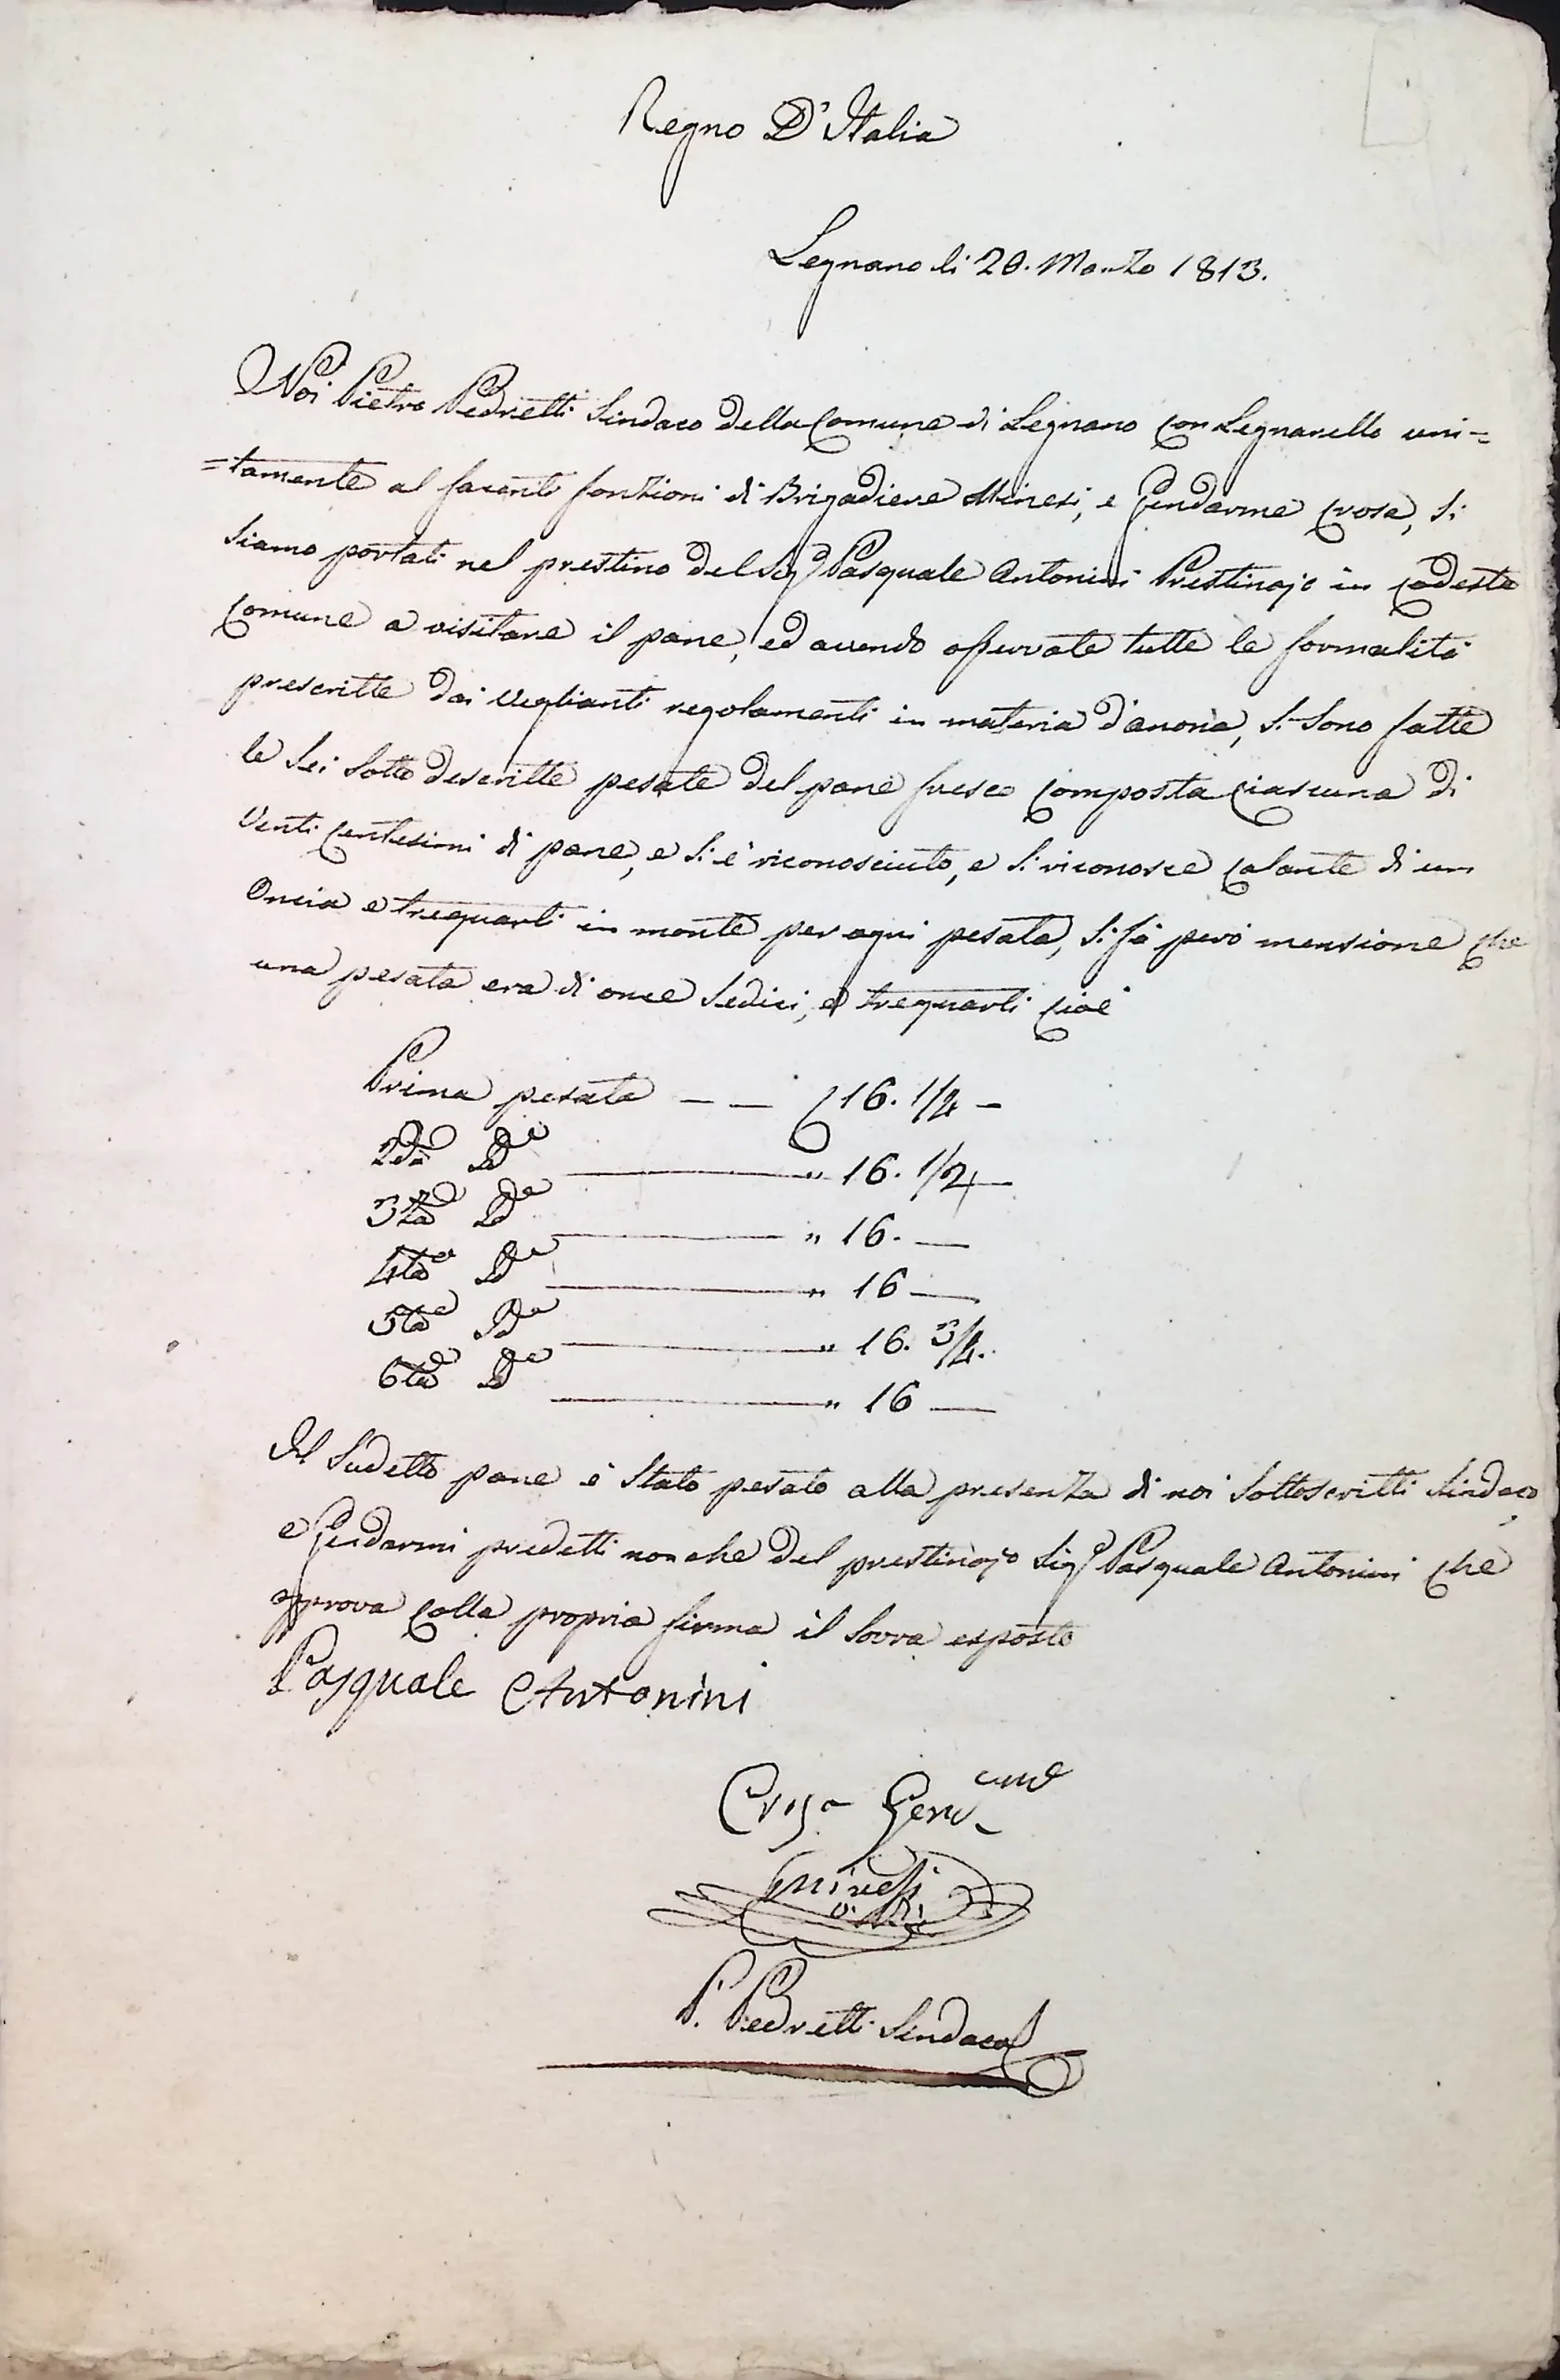 Regno D'Italia
Legnano li 20. Marzo 1813.
Noi Pietro Pedretti Sindaco della Comune di Legnano con Legnarello uni=
=tamente al facenti fonzioni di Brigadiere Minesi, e Gendarme Crosa, si
siamo portati nel prestino del Sigr Pasquale Antonini Prestinajo in codesta
Comune a visitare il pane, ed avendo osservate tutte le formalità
prescritte dai veglianti regolamenti in materia d'anona, si sono fatte
le sei sotto descritte pesate del pane fresco composta ciascuna di
venti centesimi di pane, e si è riconosciuto, e si riconosce calante di un
oncia e trequarti in monte per ogni pesata, si fà però mensione che
una pesata era di once sedici, e trequarti cioè
Prima pesata — — 16. 1/4 —
2da Da — " 16. 1/2 —
3za Da — " 16. —
4ta Da — " 16 —
5ta Da — " 16. 3/4.
6ta Da — " 16 —
Il sudetto pane è stato pesato alla presenza di noi sottoscritti Sindaco,
e Gendarmi predetti nonche del prestinajo Sigr Pasquale Antonini che
approva colla propria firma il sovra esposto
Pasquale Antonini
Crosa Gend.
Minesi
P. Pedretti Sindaco